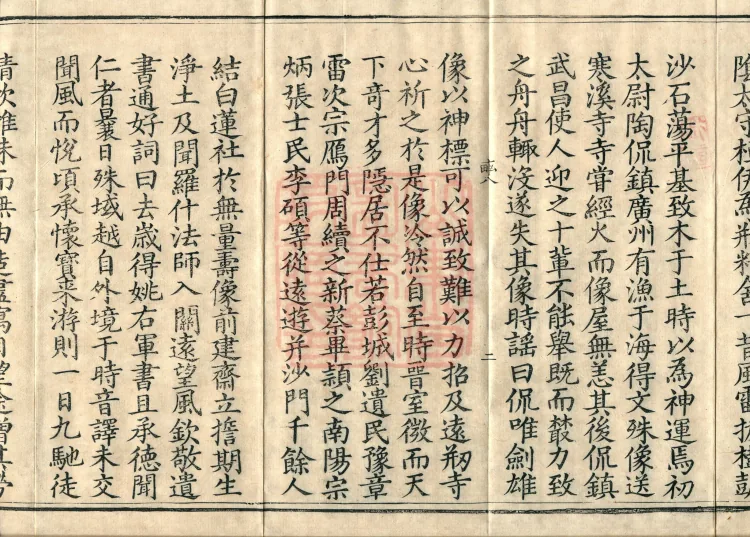 陰太守桓伊為精舍一昔風雷拔樹彭
沙石蕩平基致木于土時以為神運焉初
太尉陶侃鎮廣州有漁于海得文殊像送
寒溪寺寺甞經火而像屋無恙其後侃鎮
武昌使人迎之十輩不能舉既而藂力致
之舟舟輙沒遂失其像時謡曰侃唯劍雄
二
像以神標可以誠致難以力招及遠刱寺
心祈之於是像泠然自至時晉室微而天
下奇才多隱居不仕若彭城劉遺民豫章
雷次宗鴈門周續之新蔡畢頴之南陽宗
炳張士民李碩等從遠遊并沙門千餘人
結白蓮社於無量壽像前建齋立擔期生
淨土及聞羅什法師入關遠望風欽敬遺
書通好詞曰去歲得姚右軍書且承德聞
仁者曩日殊域越自外境于時音譯未交
聞風而悅頃承懷寶來游則一日九馳徒
情欣雖味而無由造盡寓目望途增其勞